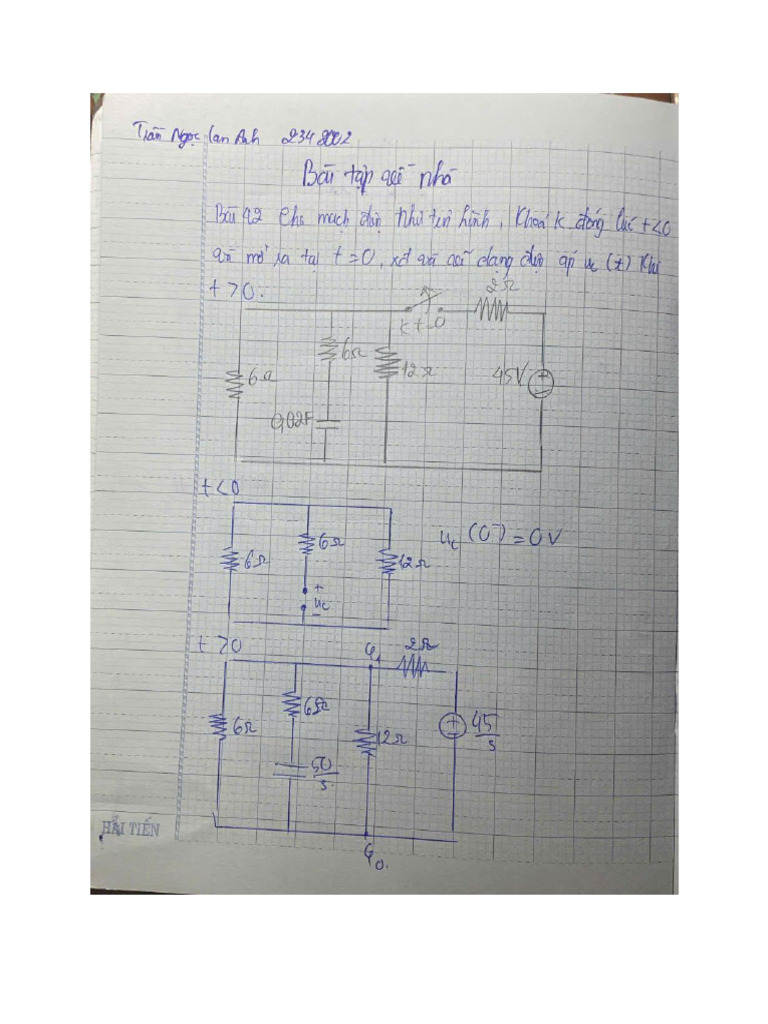 Trần Ngọc Lan Anh 2342002
Bài tập về nhà
Bài 42 Cho mạch điện như trên hình, Khoá K đóng lúc t<0
và mở ra tại t=0, xét và vẽ dạng điện áp uc (t) Khi
t >0.
2Ω
K t=0
6Ω
6Ω
12Ω
45V
0,02F
t<0
uc (0⁻) = 0V
6Ω
6Ω
12Ω
+
uc
−
t >0
φ1
2Ω
6Ω
6Ω
12Ω
45/s
50/s
HẢI TIẾN
φ0.